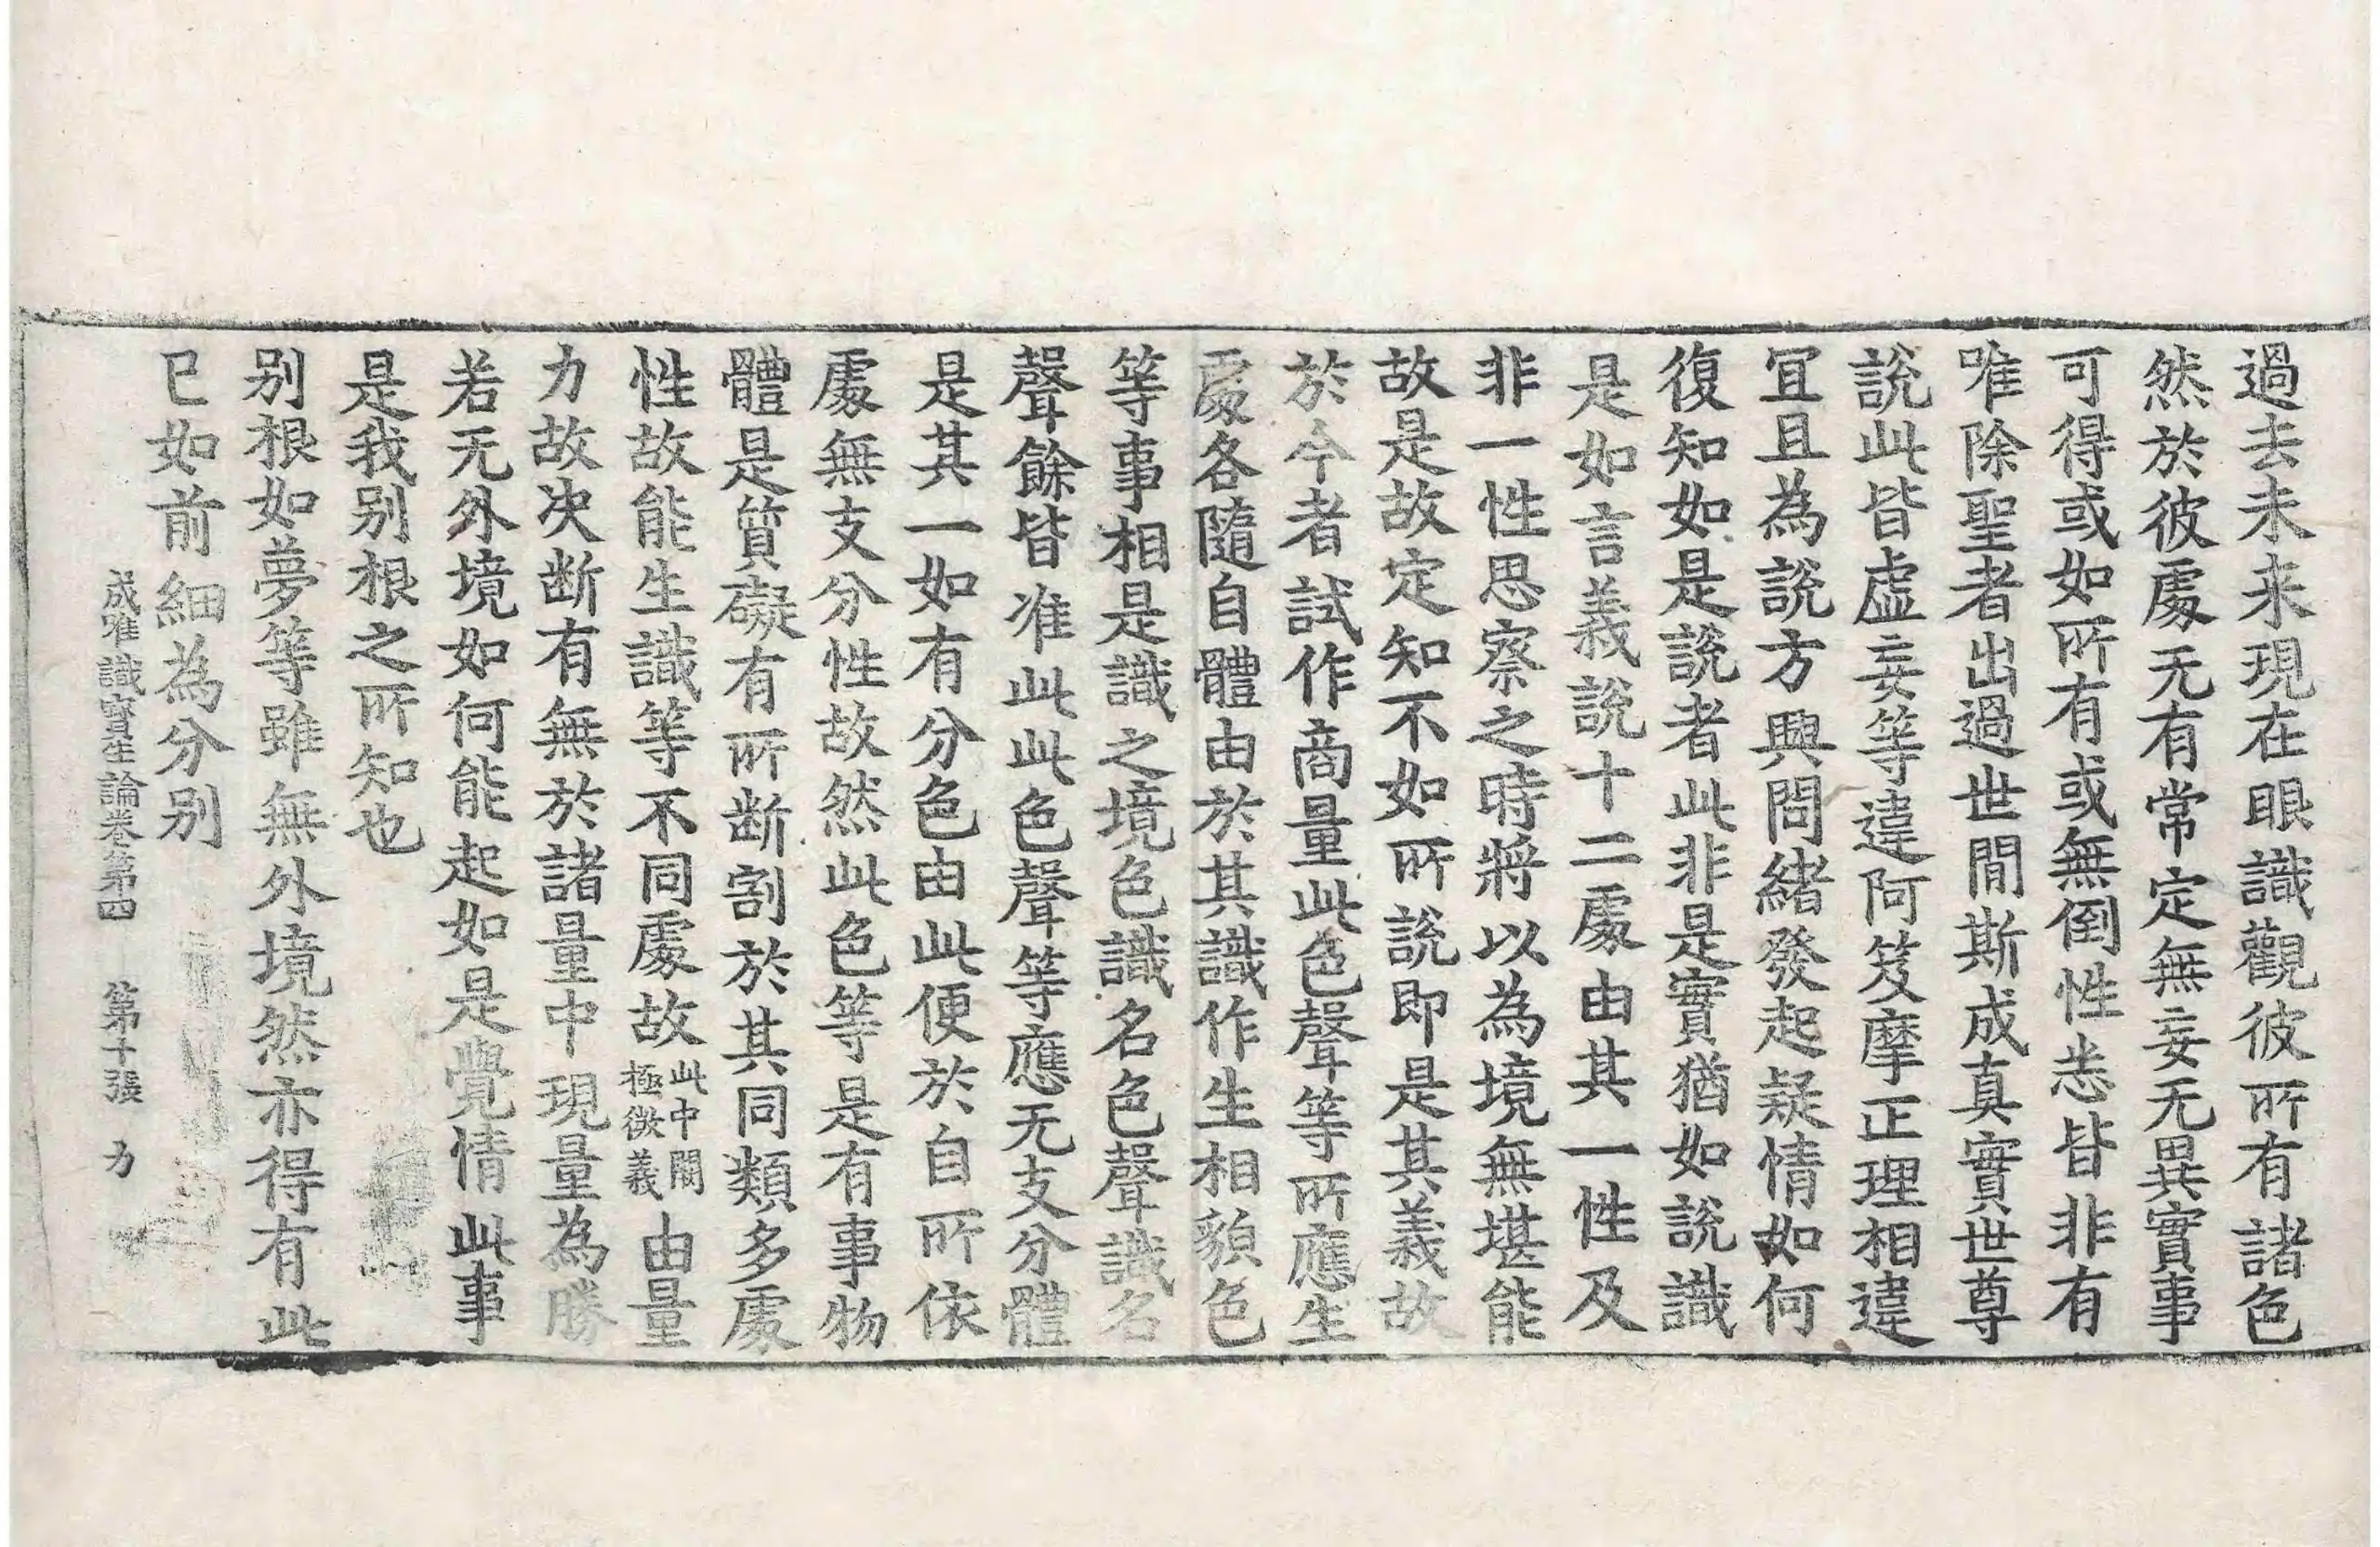 過去未来現在眼識觀彼所有諸色
然於彼處无有常定無妄无異實事
可得或如所有或無倒性悉皆非有
唯除聖者出過世間斯成真實世尊
說此皆虛妄等違阿笈摩正理相違
冝且為說方興問緒發起疑情如何
復知如是說者此非是實猶如說識
是如言義說十二處由其一性及
非一性思察之時將以為境無堪能
故是故定知不如所說即是其義故
於今者試作商量此色聲等所應生
處各隨自體由於其識作生相貌色
等事相是識之境色識名色聲識名
聲餘皆准此此色聲等應无支分體
是其一如有分色由此便於自所依
處無支分性故然此色等是有事物
體是質礙有所断割於其同類多處
性故能生識等不同處故此中闕極微義由量
力故决断有無於諸量中現量為勝
若无外境如何能起如是覺情此事
是我别根之所知也
别根如夢等雖無外境然亦得有此
已如前細為分别
成唯識寶生論卷第四 第十張 力